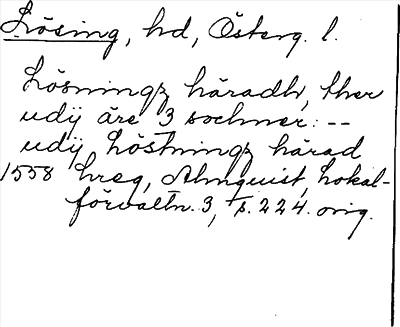 Lösing, hd, Österg. l.
Lösningz häradh, ther
udij äre 3 sochner: --
udij Löstningz härad
1558 hreg, Almquist, Lokal-
förvaltn. 3, s. 224. orig.